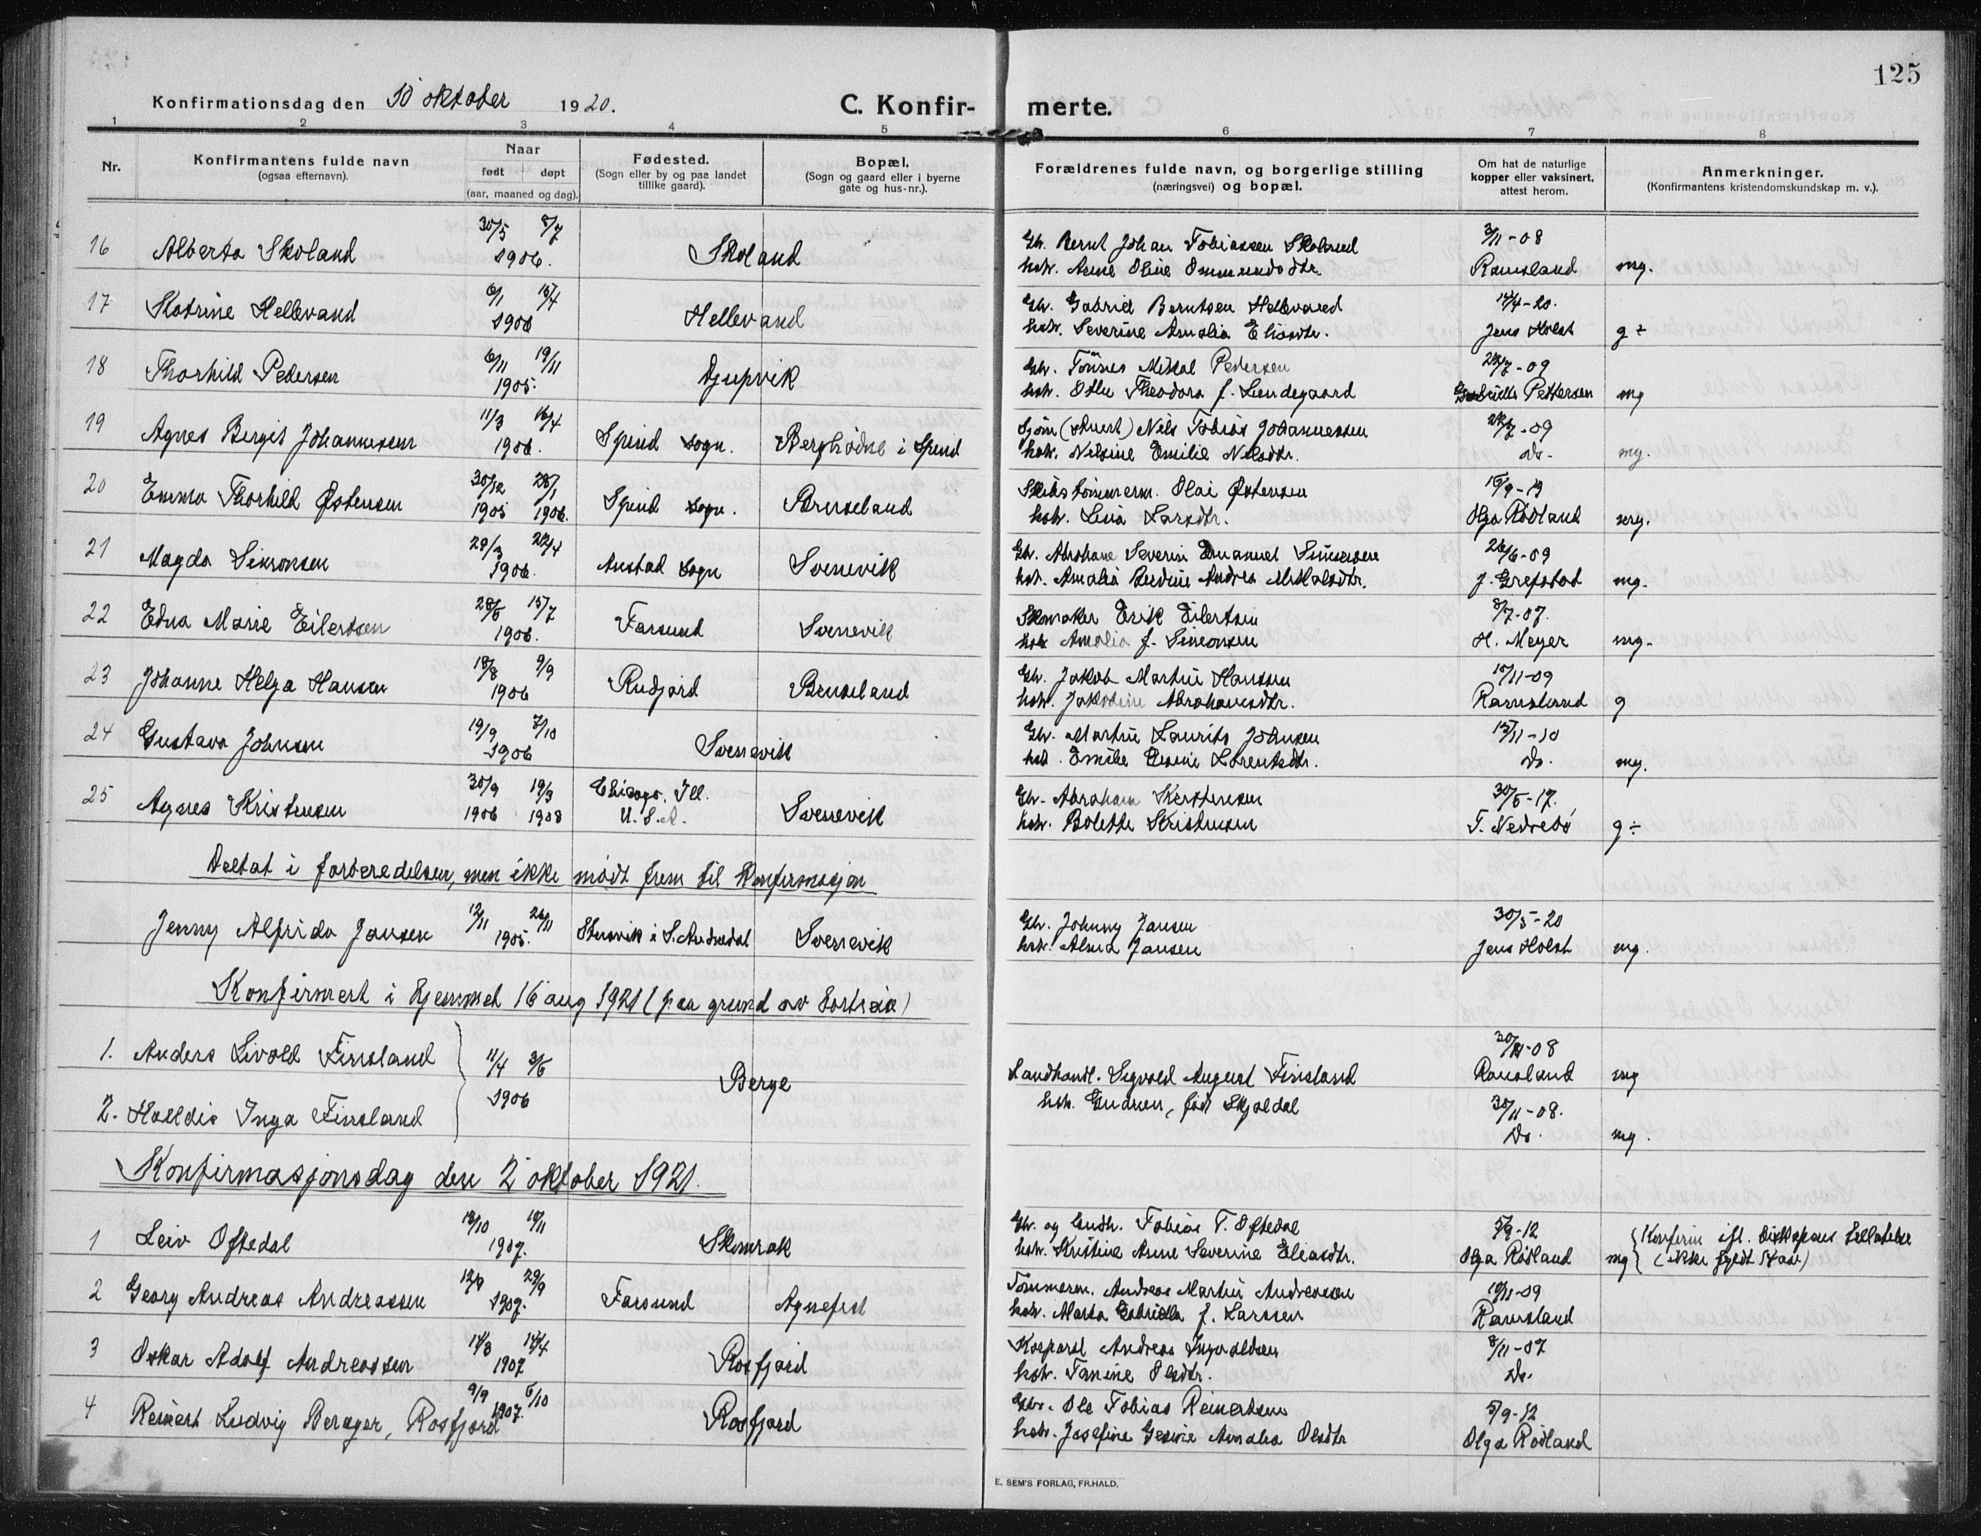 125
Konfirmationsdag den 10 oktober 1920. C. Konfir- merte.
1 2 3 4 5 6 7 8
Nr. Konfirmantens fulde navn (ogsaa efternavn). Naar født døpt (aar, maaned og dag). Fødested. (Sogn eller by og paa landet tillike gaard). Bopæl. (Sogn og gaard eller i byerne gate og hus-nr.). Forældrenes fulde navn, og borgerlige stilling (næringsvei) og bopæl. Om hat de naturlige kopper eller vaksinert, attest herom. Anmerkninger. (Konfirmantens kristendomskundskap m. v.).
30/5 8/7 Gbr. Bernt Johan Tobiassen Skoland 3/11-08
16 Alberta Skoland 1906. Skoland hstr. Anne Oline Ommundsdtr. Ramsland mg.
6/1 15/4 Gbr. Gabriel Berntsen Hellevand 14/4-20.
17 Katrine Hellevand 1906 Hellevand hstr. Severine Amalia Eliasdtr. Jens Holst g ÷
6/11 19/11 Gbr. Tønnes Mikal Pedersen 28/7-09
18 Thorhild Pedersen 1905. Djupvik hstr. Otlu Theodora f. Lundegaard Gabrielle Pettersen mg
11/3 16/4 Sjøm (Stuert) Nils Tobias Johannessen 28/7-09
19 Agnes Bergit Johannessen 1906. Spind sogn. Berghødne i Spind hstr. Nilsine Emilie Nilsdtr. Do. mg.
30/12 28/1 Skibstømmerm. Olai Østensen 16/9-19
20 Emma Thorhild Østensen 1905 1906. Spind sogn. Bruseland hstr. Lina Larsdtr. Olga Rødland mg.
29/3 22/4 Gbr. Abrahane Severin Emanuel Simonsen 26/6-09
21 Magda Simonsen 1906. Austad sogn Svenevik hstr. Amalia Bertine Andrea Mikalsdtr. J. Grefstad mg.
28/5 15/7 Skomaker Erik Eilertsen 8/7-07.
22 Edna Marie Eilertsen 1906. Farsund Svenevik hstr. Amalia f. Simonsen H. Meyer mg.
18/8 9/9 Gbr. Jakob Martin Hanssen 15/11-09
23 Johanne Helga Hansen 1906 Rudjord Bruseland hstr. Jakobine Abrahamsdtr. Ramsland g
19/9 7/10 Gbr. Martin Laurits Johnsen 15/11-10
24 Gustava Johnsen 1906 Svenevik hstr. Emilie Lorentsdtr. Do. mg.
30/9 19/3 Chicago. Ill. Gbr. Abraham Kristensen 30/5-17.
25 Agnes Kristensen 1906 1908 U. S. A. Svenevik hstr. Bolette Kristensen T. Nedrebø g÷
Deltat i forberedelsen, men ikke mødt frem til Konfirmasjon
12/11 26/11 Gbr. Johnny Jansen 30/5-20
Jenny Alfrida Jansen 1905. Stensvik i S. Audnedal Svenevik hstr. Alma Jansen Jens Holst mg.
Konfirmert i hjemmet 16 aug 1921 (paa grund av bortreise)
30/11-08
1. Anders Sivald Finsland 11/4 3/6 1906 Berge Landhandl. Sigvald August Finsland Ramsland mg
hstr. Gudrun, født Skjoldal
2. Halldis Inga Finsland 30/11-08. Do. mg.
Konfirmasjonsdag den 2 oktober 1921.
13/10 10/11 Gbr. og landh. Tobias T. Oftedal 5/9-12 Konfirm ifl. biskopens tillatelse
1 Leiv Oftedal 1907. Skomrak hstr. Kristine Anne Severine Eliasdtr. Olga Rødland mg (ikke fyldt 14 aar)
12/9 29/9 Tømmerm. Andreas Martin Andreassen 19/11-09
2 Georg Andreas Andreassen 1907. Farsund Agnefest hstr. Marta Gabriella f. Larssen Ramsland
14/3 14/4 Andreas Ingvaldsen 8/11-07
3 Oskar Adolf Andreassen 1907 Rosfjord hstr. Tanine Olsdtr. Do.
9/9 6/10 Gbr. Ole Tobias Reinertsen 5/9-12
4 Reinert Ludvig Berager, Rosfjord 1907. Rosfjord hstr. Josefine Gesine Amalia Olsdtr Olga Rødland
E. SEM'S FORLAG, FR.HALD.